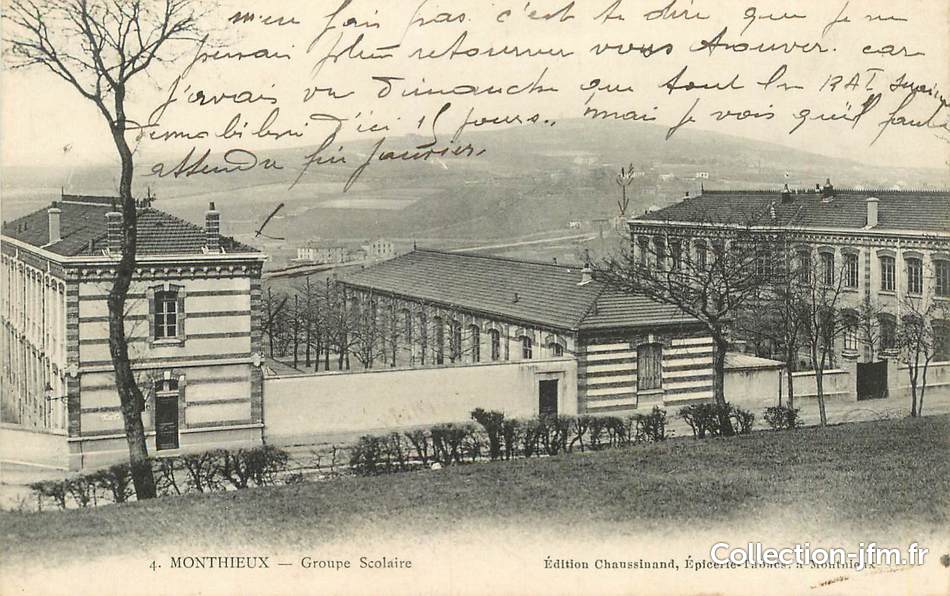 m'en fais pas. c'est te dire que je ne
pensais plus retourner vous trouver. car
j'avais vu Dimanche que tout la RAT serait
demobilisé d'ici 15 jours.. mais je vois qu'il faut
attendre fin janvier.
4. MONTHIEUX — Groupe Scolaire
Édition Chaussinand, Épicerie-Tabacs, à Monthieux
Collection-jfm.fr